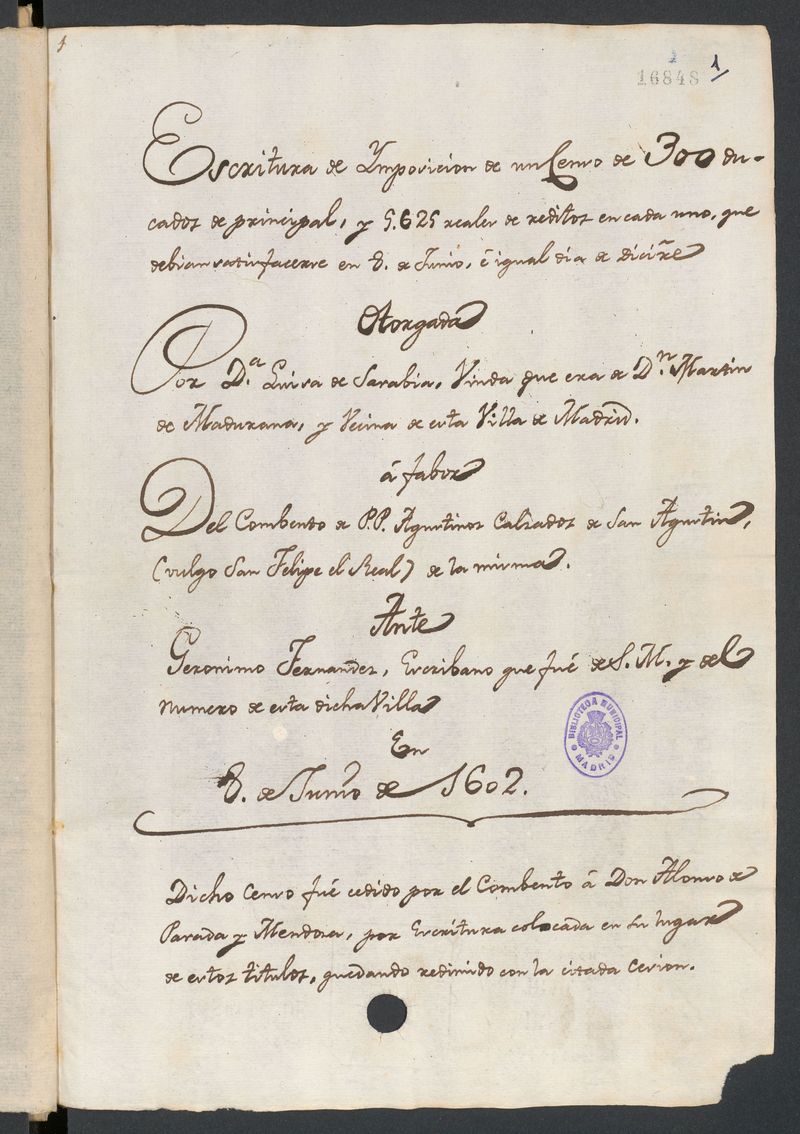 1
16848
1
Escritura de Ymposicion de un Censo de 300 du-
cados de principal, y 5.625 reales de reditos en cada uno, que
debian satisfacerse en 8. de Junio, é igual dia de Dicire
Otorgada
Por D.a Luisa de Sarabia, Viuda que era de D.n Martin
de Madurana, y Vecina de esta Villa de Madrid.
á fabor
Del Combento de P.P. Agustinos Calzados de San Agustin,
(vulgo San Felipe el Real) de la misma.
Ante
Geronimo Fernandez, Escribano que fué de S. M. y del
Numero de esta dicha Villa
En
8. de Junio de 1602.
BIBLIOTECA MUNICIPAL
MADRID
Dicho Censo fué cedido por el Combento á Don Alonso de
Parada y Mendoza, por Escritura colocada en su lugar
de estos titulos, quedando redimido con la citada Cesion.